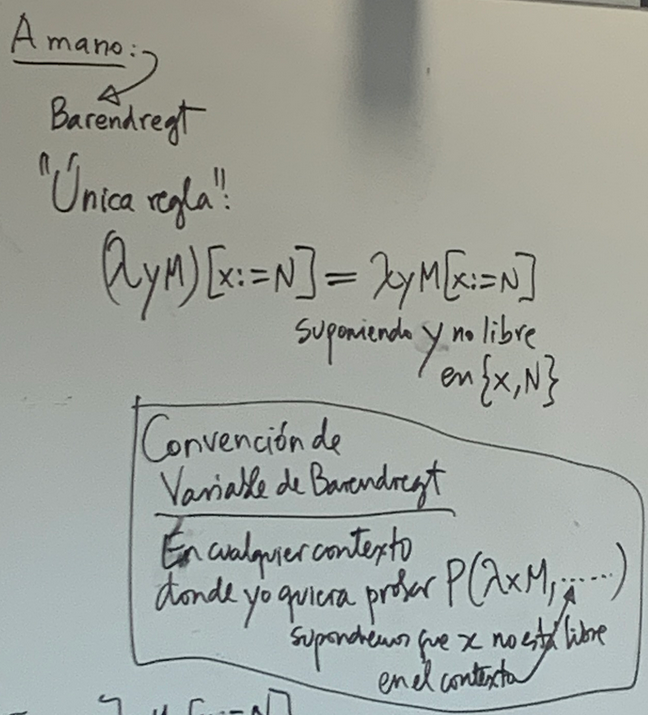 A mano:
Barendregt
"Única regla":
(λyM)[x:=N] = λyM[x:=N]
suponiendo y no libre
en {x,N}
Convención de
Variable de Barendregt
En cualquier contexto
donde yo quiera probar P(λxM,......)
supondremos que x no está libre
en el contexto